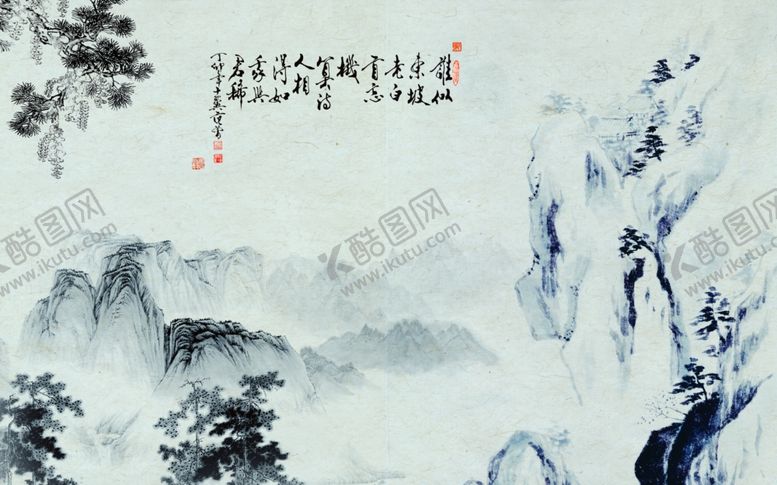 誰似
東坡
老白
首忘
機
算詩
人相
得如
我與
君稀
丁卯
酷图网
www.ikutu.com
酷图网
www.ikutu.com
酷图网
www.ikutu.com